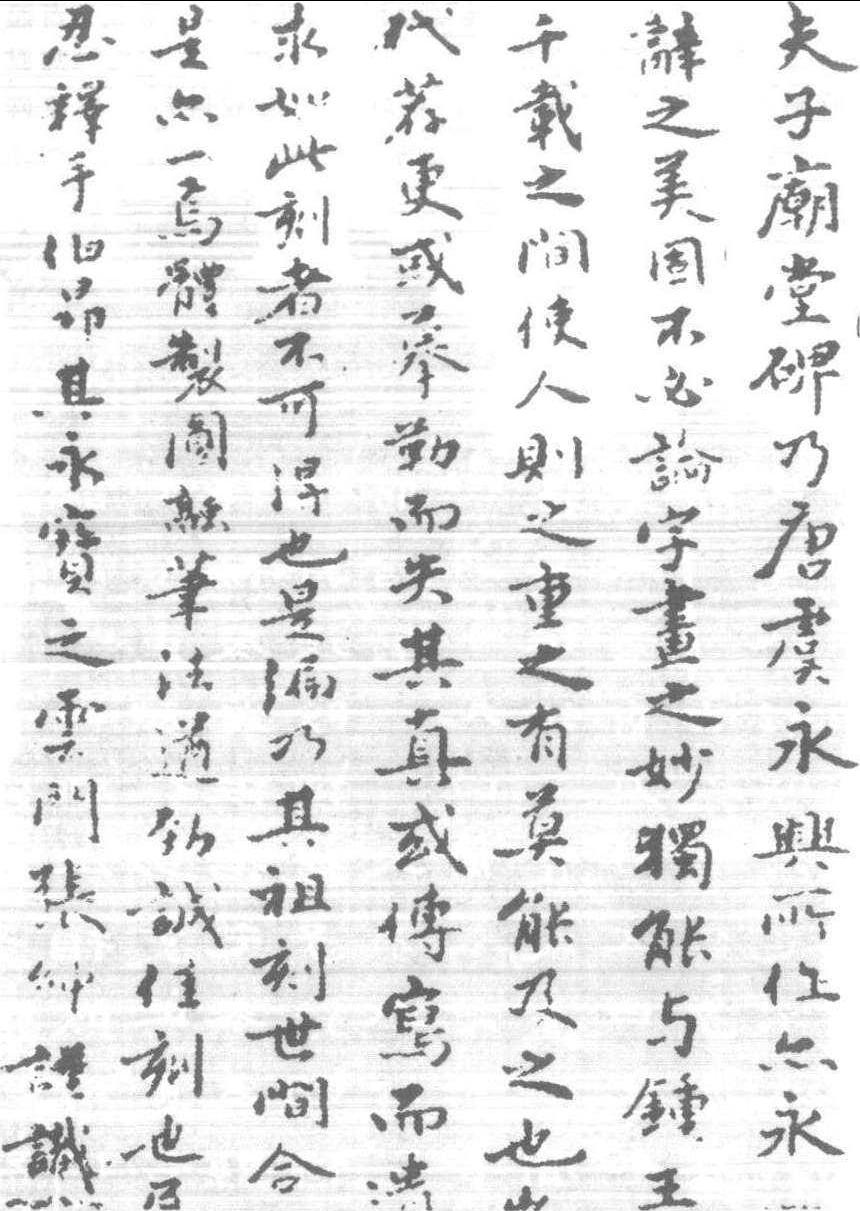 夫子廟堂碑乃唐虞永興所作亦永
辭之美固不必論字畫之妙獨能与鍾王
千載之間使人則之重之有莫能及之也
代荐更或以摹勒而失其真或傳寫而
求如此刻者不可得也是編乃其祖刻世間合
是亦一焉體製圓融筆法遒勁誠佳刻也
忍釋手伯昂其永寶之雲門張紳謹識